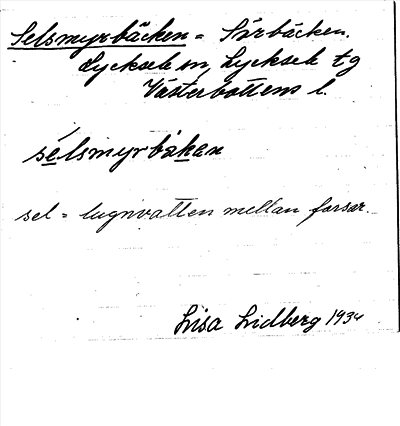 Selsmyrbäcken = Sörbäcken.
Lycksele sn, Lycksele tg
Västerbottens l.
sélsmyrbäkən
sel = lugnvatten mellan forsar.
Lisa Lidberg 1934